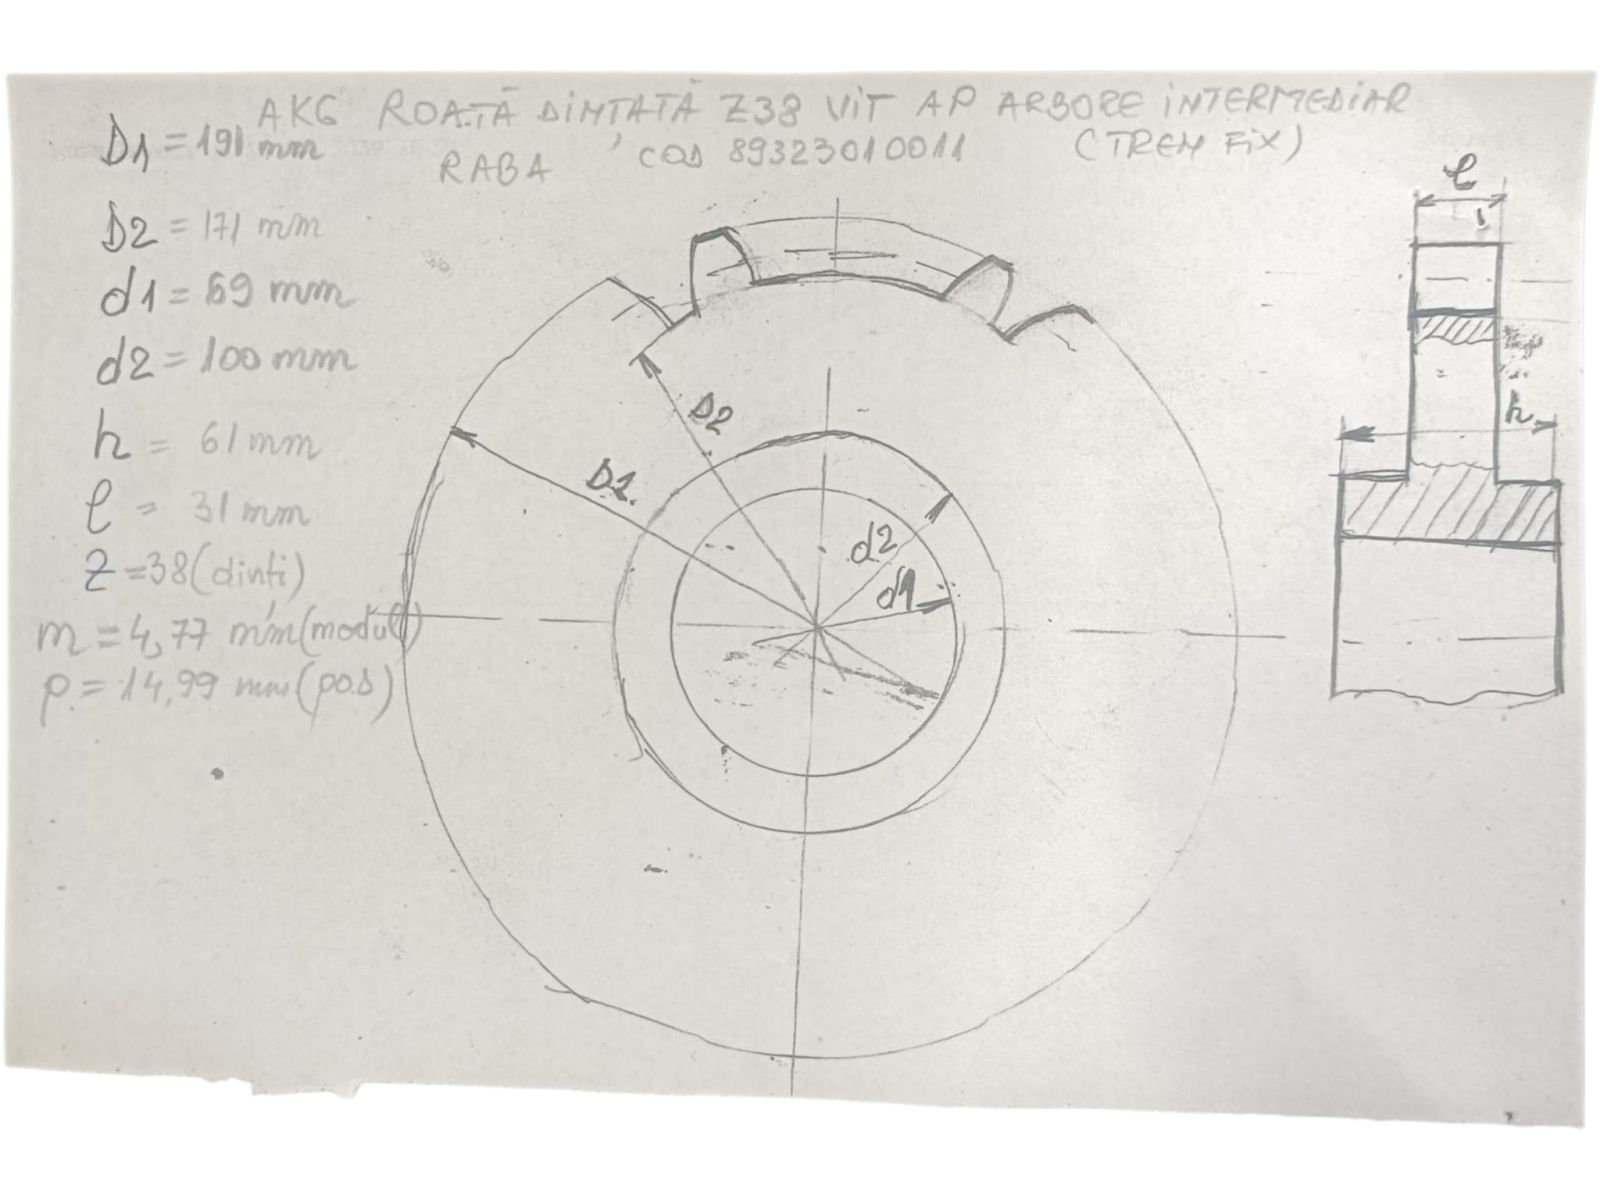 AK6 ROATĂ DINTATĂ Z38 VIT AP ARBORE INTERMEDIAR
RABA COD 89323010011 (TREN FIX)
D1 = 191 mm
D2 = 171 mm
d1 = 69 mm
d2 = 100 mm
h = 61 mm
l = 31 mm
Z = 38 (dinți)
m = 4,77 mm (modul)
p = 14,99 mm (pas)
D2
D1
d2
d1
l
h